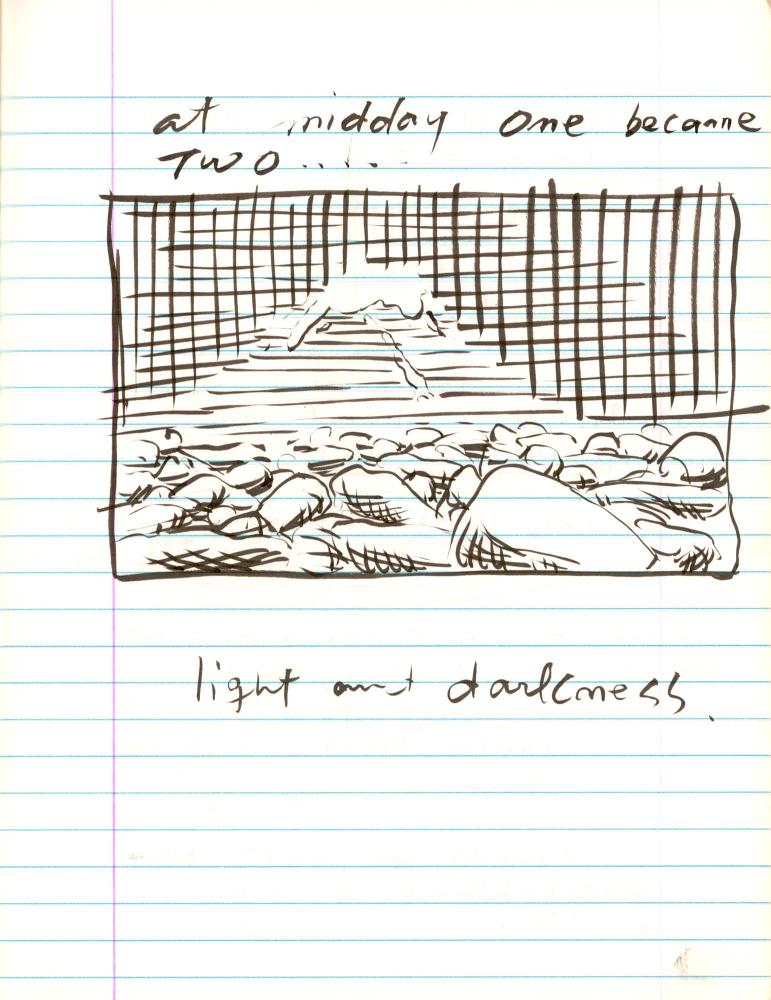 at midday one became
TWO.....
light and darkness.